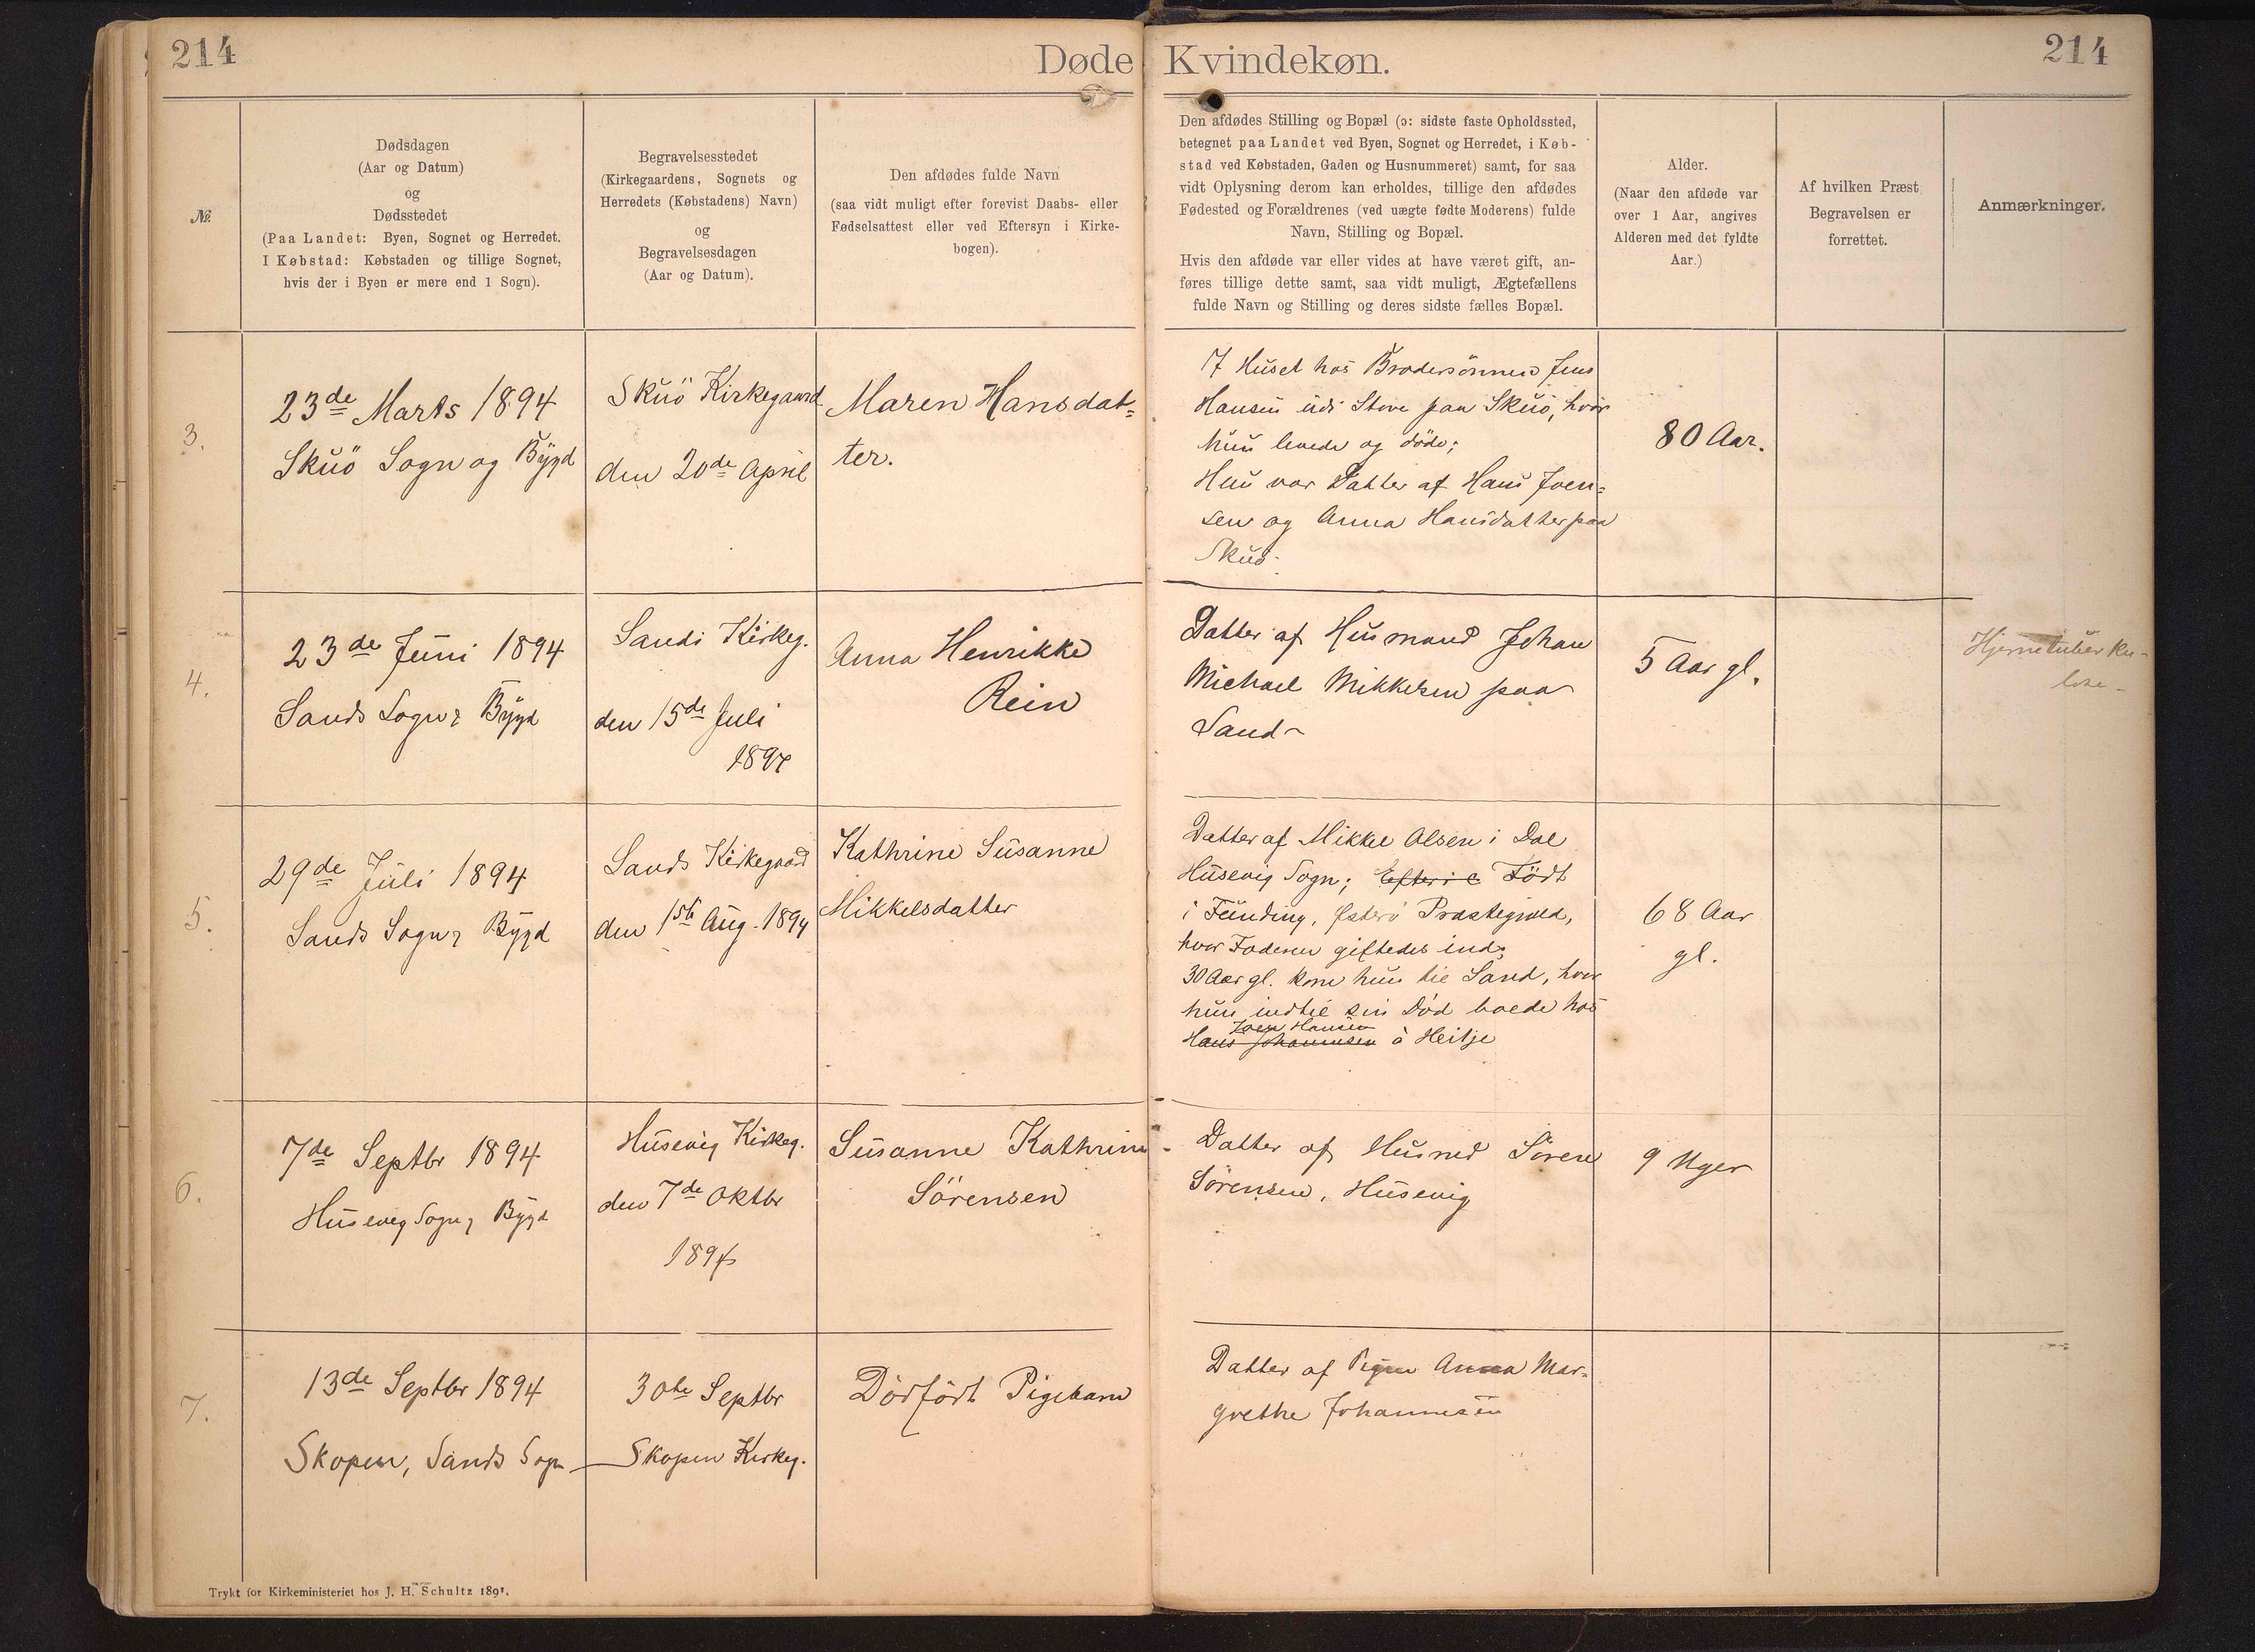 214
Døde Kvindekøn.
214
№
Dødsdagen
(Aar og Datum)
og
Dødsstedet
(Paa Landet: Byen, Sognet og Herredet.
I Købstad: Købstaden og tillige Sognet,
hvis der i Byen er mere end 1 Sogn).
Begravelsesstedet
(Kirkegaardens, Sognets og
Herredets (Købstadens) Navn)
og
Begravelsesdagen
(Aar og Datum).
Den afdødes fulde Navn
(saa vidt muligt efter forevist Daabs- eller
Fødselsattest eller ved Eftersyn i Kirke-
bogen).
Den afdødes Stilling og Bopæl (ɔ: sidste faste Opholdssted,
betegnet paa Landet ved Byen, Sognet og Herredet, i Køb-
stad ved Købstaden, Gaden og Husnummeret) samt, for saa
vidt Oplysning derom kan erholdes, tillige den afdødes
Fødested og Forældrenes (ved uægte fødte Moderens) fulde
Navn, Stilling og Bopæl.
Hvis den afdøde var eller vides at have været gift, an-
føres tillige dette samt, saa vidt muligt, Ægtefællens
fulde Navn og Stilling og deres sidste fælles Bopæl.
Alder.
(Naar den afdøde var
over 1 Aar, angives
Alderen med det fyldte
Aar.)
Af hvilken Præst
Begravelsen er
forrettet.
Anmærkninger.
3.
23de Marts 1894
Skuö Sogn og Bygd
Skuö Kirkegaard
den 20de April
Maren Hansdat=
ter.
I Huset hos Brodersönnen Jens
Hansen udi Stove paa Skuö, hvor
hun levede og döde;
Hun var Datter af Hans Joen=
sen og Anna Hansdatter paa
Skuö.
80 Aar.
4.
23de Juni 1894
Sands Sogn & Bygd
Sands Kirkeg.
den 15de Juli
1894
Anna Henrikke
Rein
Datter af Husmand Johan
Michael Mikkelsen paa
Sand
5 Aar gl.
Hjernetuberku-
lose
5.
29de Juli 1894
Sands Sogn & Bygd
Sands Kirkegaard
den 1ste Aug. 1894
Kathrine Susanne
Mikkelsdatter
Datter af Mikkel Olsen i Dal
Husevig Sogn; Födt
i Funding, Østerö Præstegjæld,
hvor Faderen giftedes ind;
30 Aar gl. kom hun til Sand, hvor
hun indtil sin Död boede hos
Joen Hansen
Hans Johannesen à Heitje
68 Aar
gl.
6.
7de Septbr 1894
Husevig Sogn & Bygd
Husevig Kirkeg.
den 7de Oktbr
1894
Susanne Kathrine
Sörensen
Datter af Husmd Sören
Sörensen, Husevig
9 Uger
7.
13de Septbr 1894
Skopen, Sands Sogn
30te Septbr
Skopen Kirkeg.
Dödfödt Pigebarn
Datter af Pigen Anna Mar=
grethe Johannesen
Trykt for Kirkeministeriet hos J. H. Schultz 1891.